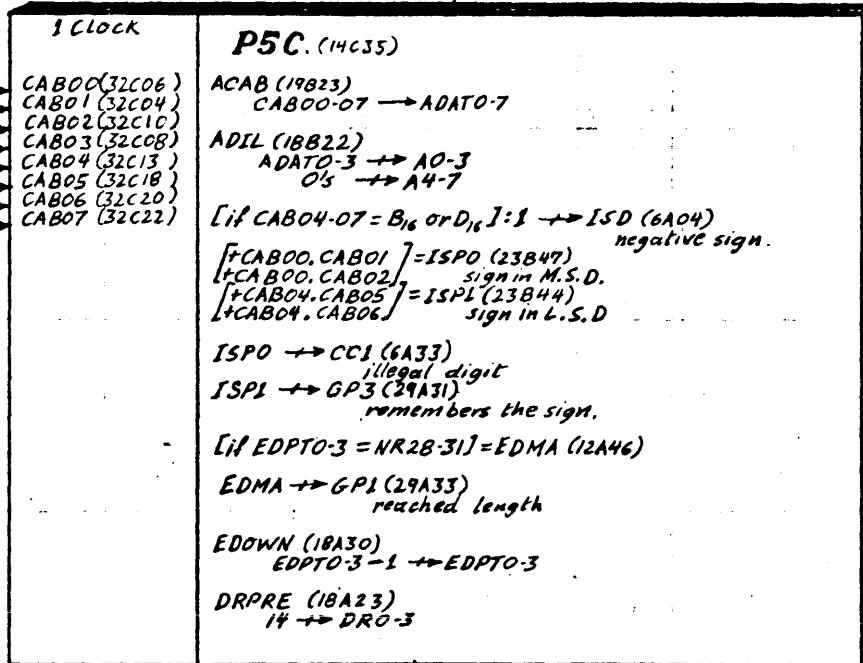 1 Clock
CAB00(32C06)
CAB01(32C04)
CAB02(32C10)
CAB03(32C08)
CAB04(32C13 )
CAB05(32C18)
CAB06(32C20)
CAB07(32C22)
P5C. (14C35)
ACAB (19B23)
CAB00-07 → ADAT0-7
ADIL (18B22)
ADAT0-3 ↛ A0-3
0's ↛ A4-7
[if CAB04-07 = B₁₆ or D₁₆]:1 ↛ ISD (6A04)
negative sign.
[+CAB00.CAB01
+CAB00.CAB02] = ISP0 (23B47)
sign in M.S.D.
[+CAB04.CAB05
+CAB04.CAB06] = ISP1 (23B44)
sign in L.S.D
ISP0 ↛ CC1 (6A33)
illegal digit
ISP1 ↛ GP3 (29A31)
remembers the sign.
[if EDPT0-3 = NR28-31] = EDMA (12A46)
EDMA ↛ GP1 (29A33)
reached length
EDOWN (18A30)
EDPT0-3 - 1 ↛ EDPT0-3
DRPRE (18A23)
14 ↛ DR0-3